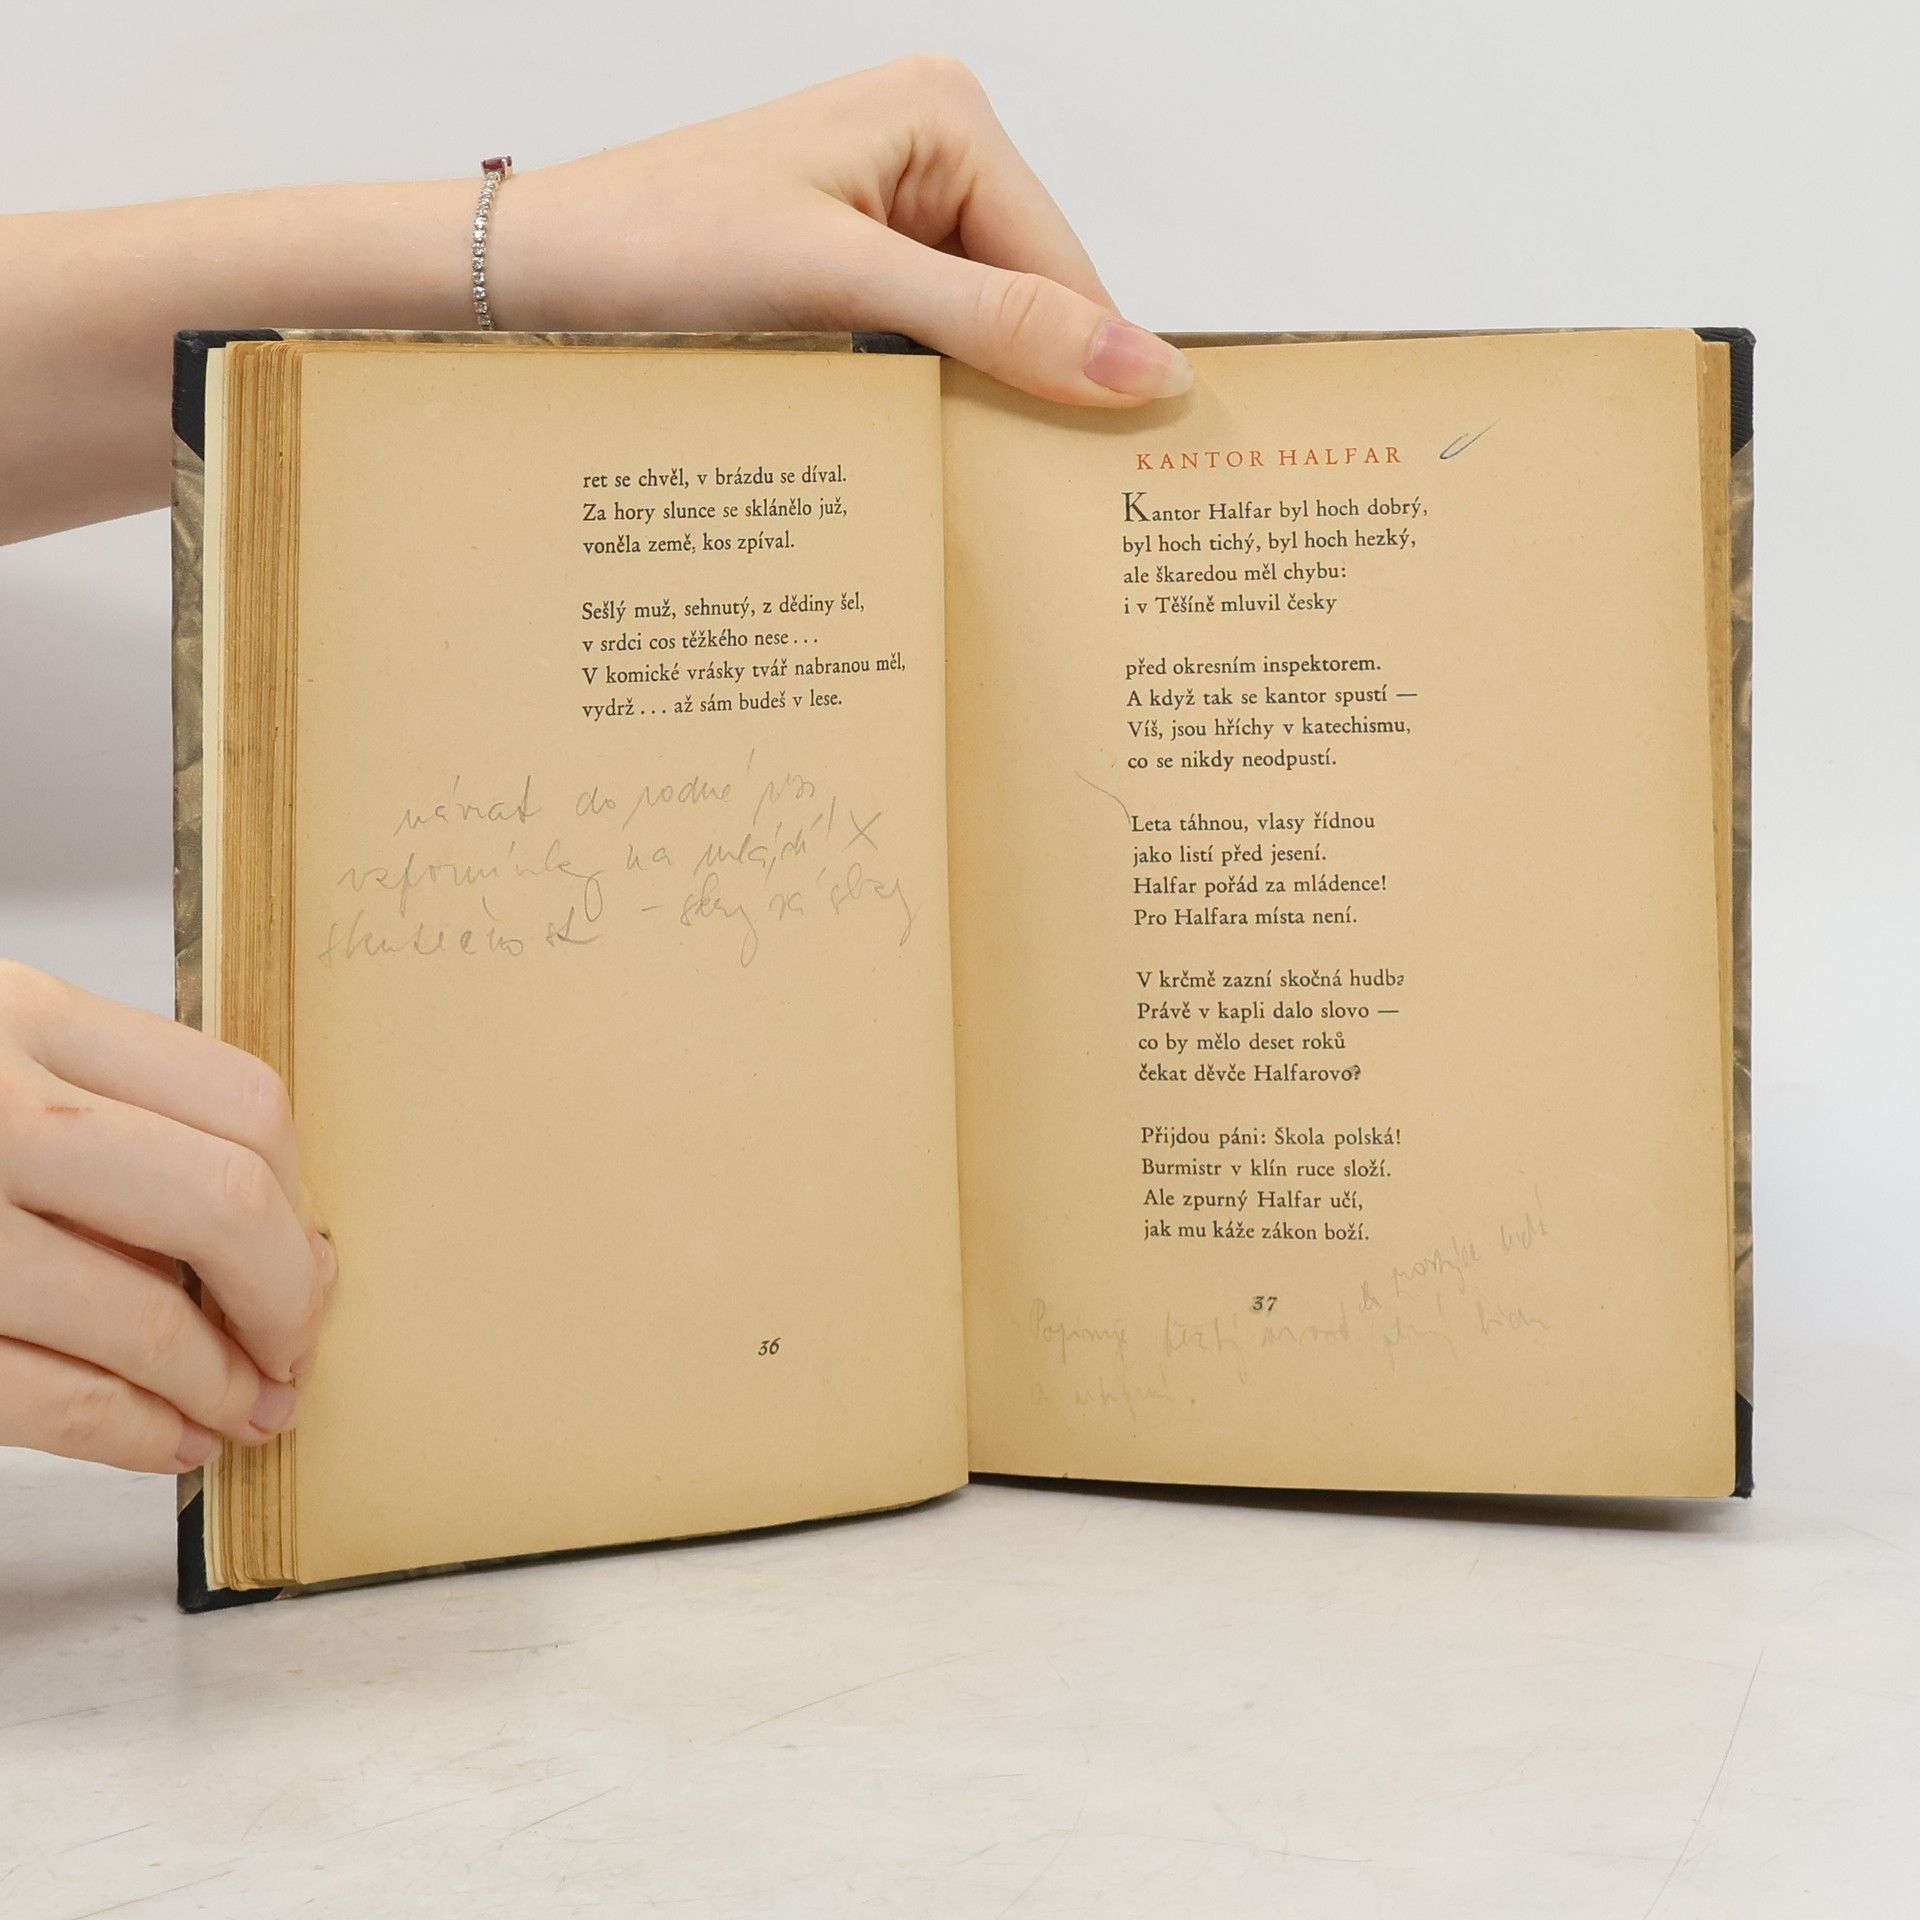 ret se chvěl, v brázdu se díval.
Za hory slunce se sklánělo již,
voněla země, kos zpíval.
Sešlý muž, sehnutý, z dědiny šel,
v srdci cos těžkého nese...
V komické vrásky tvář nabranou měl,
vydrž... až sám budeš v lese.
návrat do rodné vsi
vzpomínky na mládí X
skutečnost –
36
KANTOR HALFAR
Kantor Halfar byl hoch dobrý,
byl hoch tichý, byl hoch hezký,
ale škaredou měl chybu:
i v Těšíně mluvil česky
před okresním inspektorem.
A když tak se kantor spustí —
Víš, jsou hříchy v katechismu,
co se nikdy neodpustí.
Leta táhnou, vlasy řídnou
jako listí před jesení.
Halfar pořád za mládence!
Pro Halfara místa není.
V krčmě zazní skočná hudba
Právě v kapli dalo slovo —
co by mělo deset roků
čekat děvče Halfarovo?
Přijdou páni: Škola polská!
Burmistr v klín ruce složí.
Ale zpurný Halfar učí,
jak mu káže zákon boží.
37